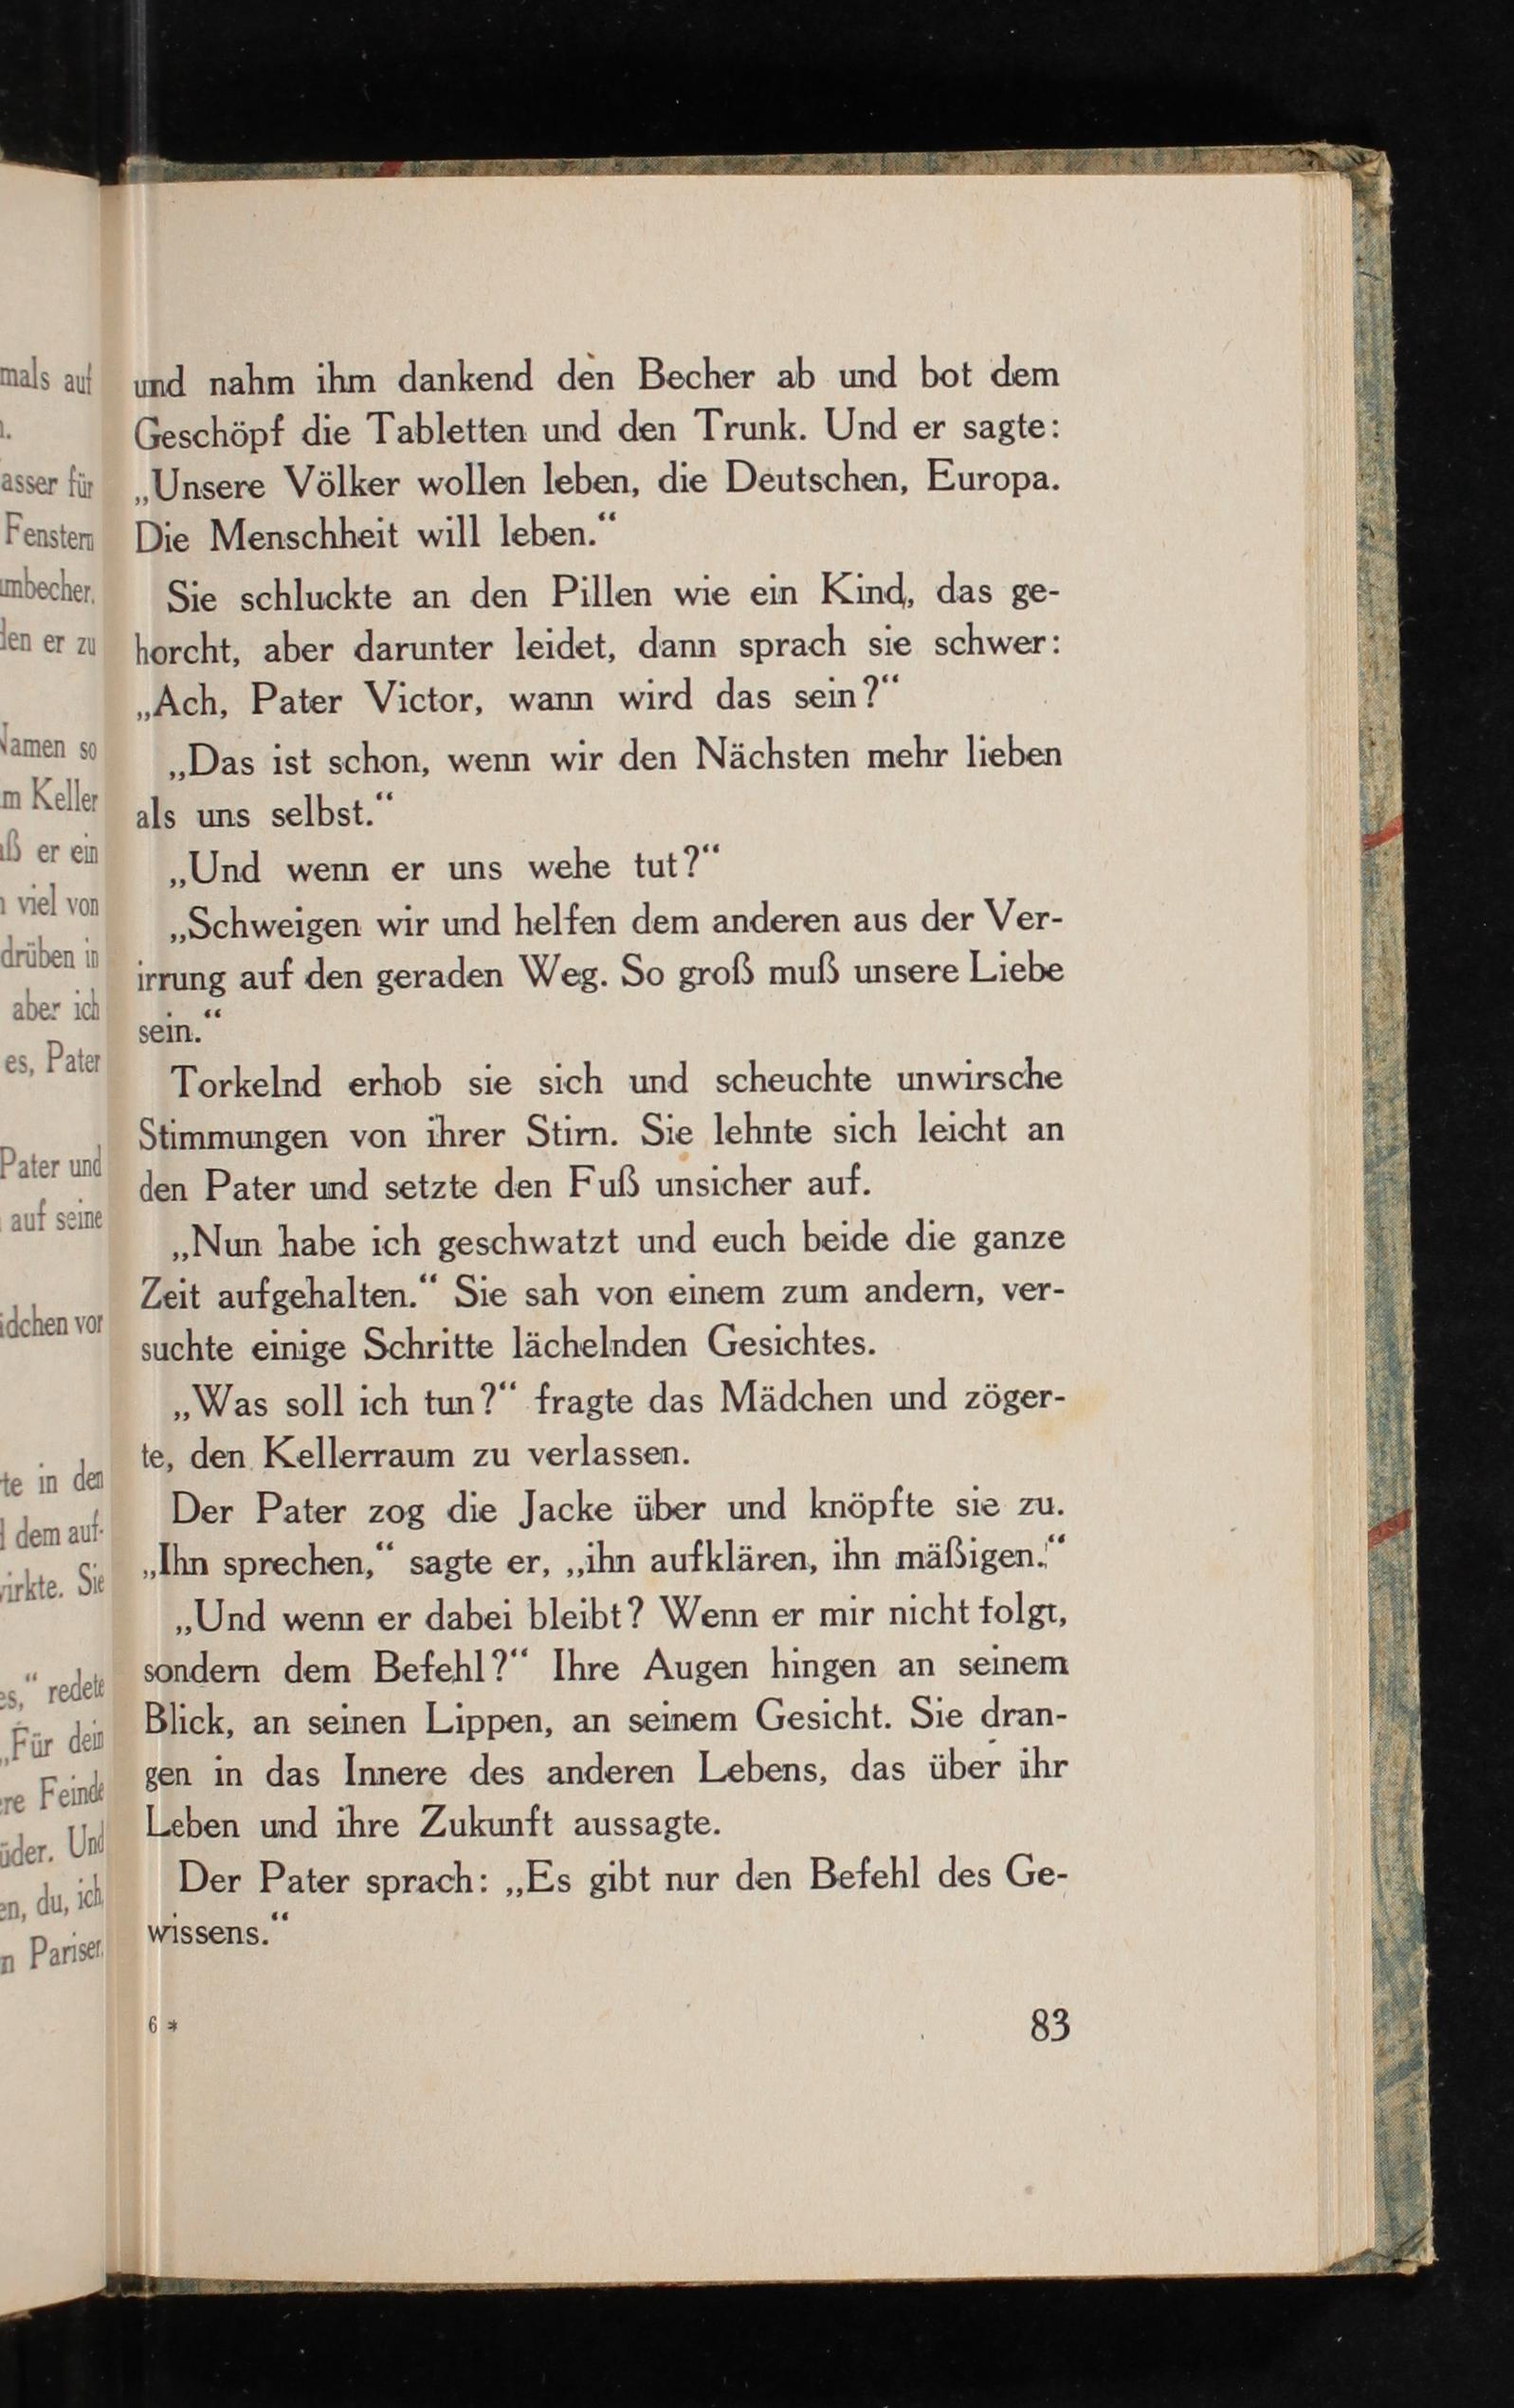 mals auf
asser für
Fenstern
den er zu
Namen so
m Keller
er ein
viel von
drüben in
aber ich
es, Pater
Pater und
auf seine
te in den
dem auf-
wirkte. Sie
es,“ redete
„Für dein
Feinde
Und
du, ich
Pariser
und nahm ihm dankend den Becher ab und bot dem
Geschöpf die Tabletten und den Trunk. Und er sagte:
„Unsere Völker wollen leben, die Deutschen, Europa.
Die Menschheit will leben.“
Sie schluckte an den Pillen wie ein Kind, das ge-
horcht, aber darunter leidet, dann sprach sie schwer:
„Ach, Pater Victor, wann wird das sein?“
„Das ist schon, wenn wir den Nächsten mehr lieben
als uns selbst.“
„Und wenn er uns wehe tut?“
„Schweigen wir und helfen dem anderen aus der Ver-
irrung auf den geraden Weg. So groß muß unsere Liebe
sein.“
Torkelnd erhob sie sich und scheuchte unwirsche
Stimmungen von ihrer Stirn. Sie lehnte sich leicht an
den Pater und setzte den Fuß unsicher auf.
„Nun habe ich geschwatzt und euch beide die ganze
Zeit aufgehalten.“ Sie sah von einem zum andern, ver-
suchte einige Schritte lächelnden Gesichtes.
„Was soll ich tun?“ fragte das Mädchen und zöger-
te, den Kellerraum zu verlassen.
Der Pater zog die Jacke über und knöpfte sie zu.
„Ihn sprechen,“ sagte er, „ihn aufklären, ihn mäßigen.“
„Und wenn er dabei bleibt? Wenn er mir nicht folgt,
sondern dem Befehl?“ Ihre Augen hingen an seinem
Blick, an seinen Lippen, an seinem Gesicht. Sie dran-
gen in das Innere des anderen Lebens, das über ihr
Leben und ihre Zukunft aussagte.
Der Pater sprach: „Es gibt nur den Befehl des Ge-
wissens.“
6 *
83